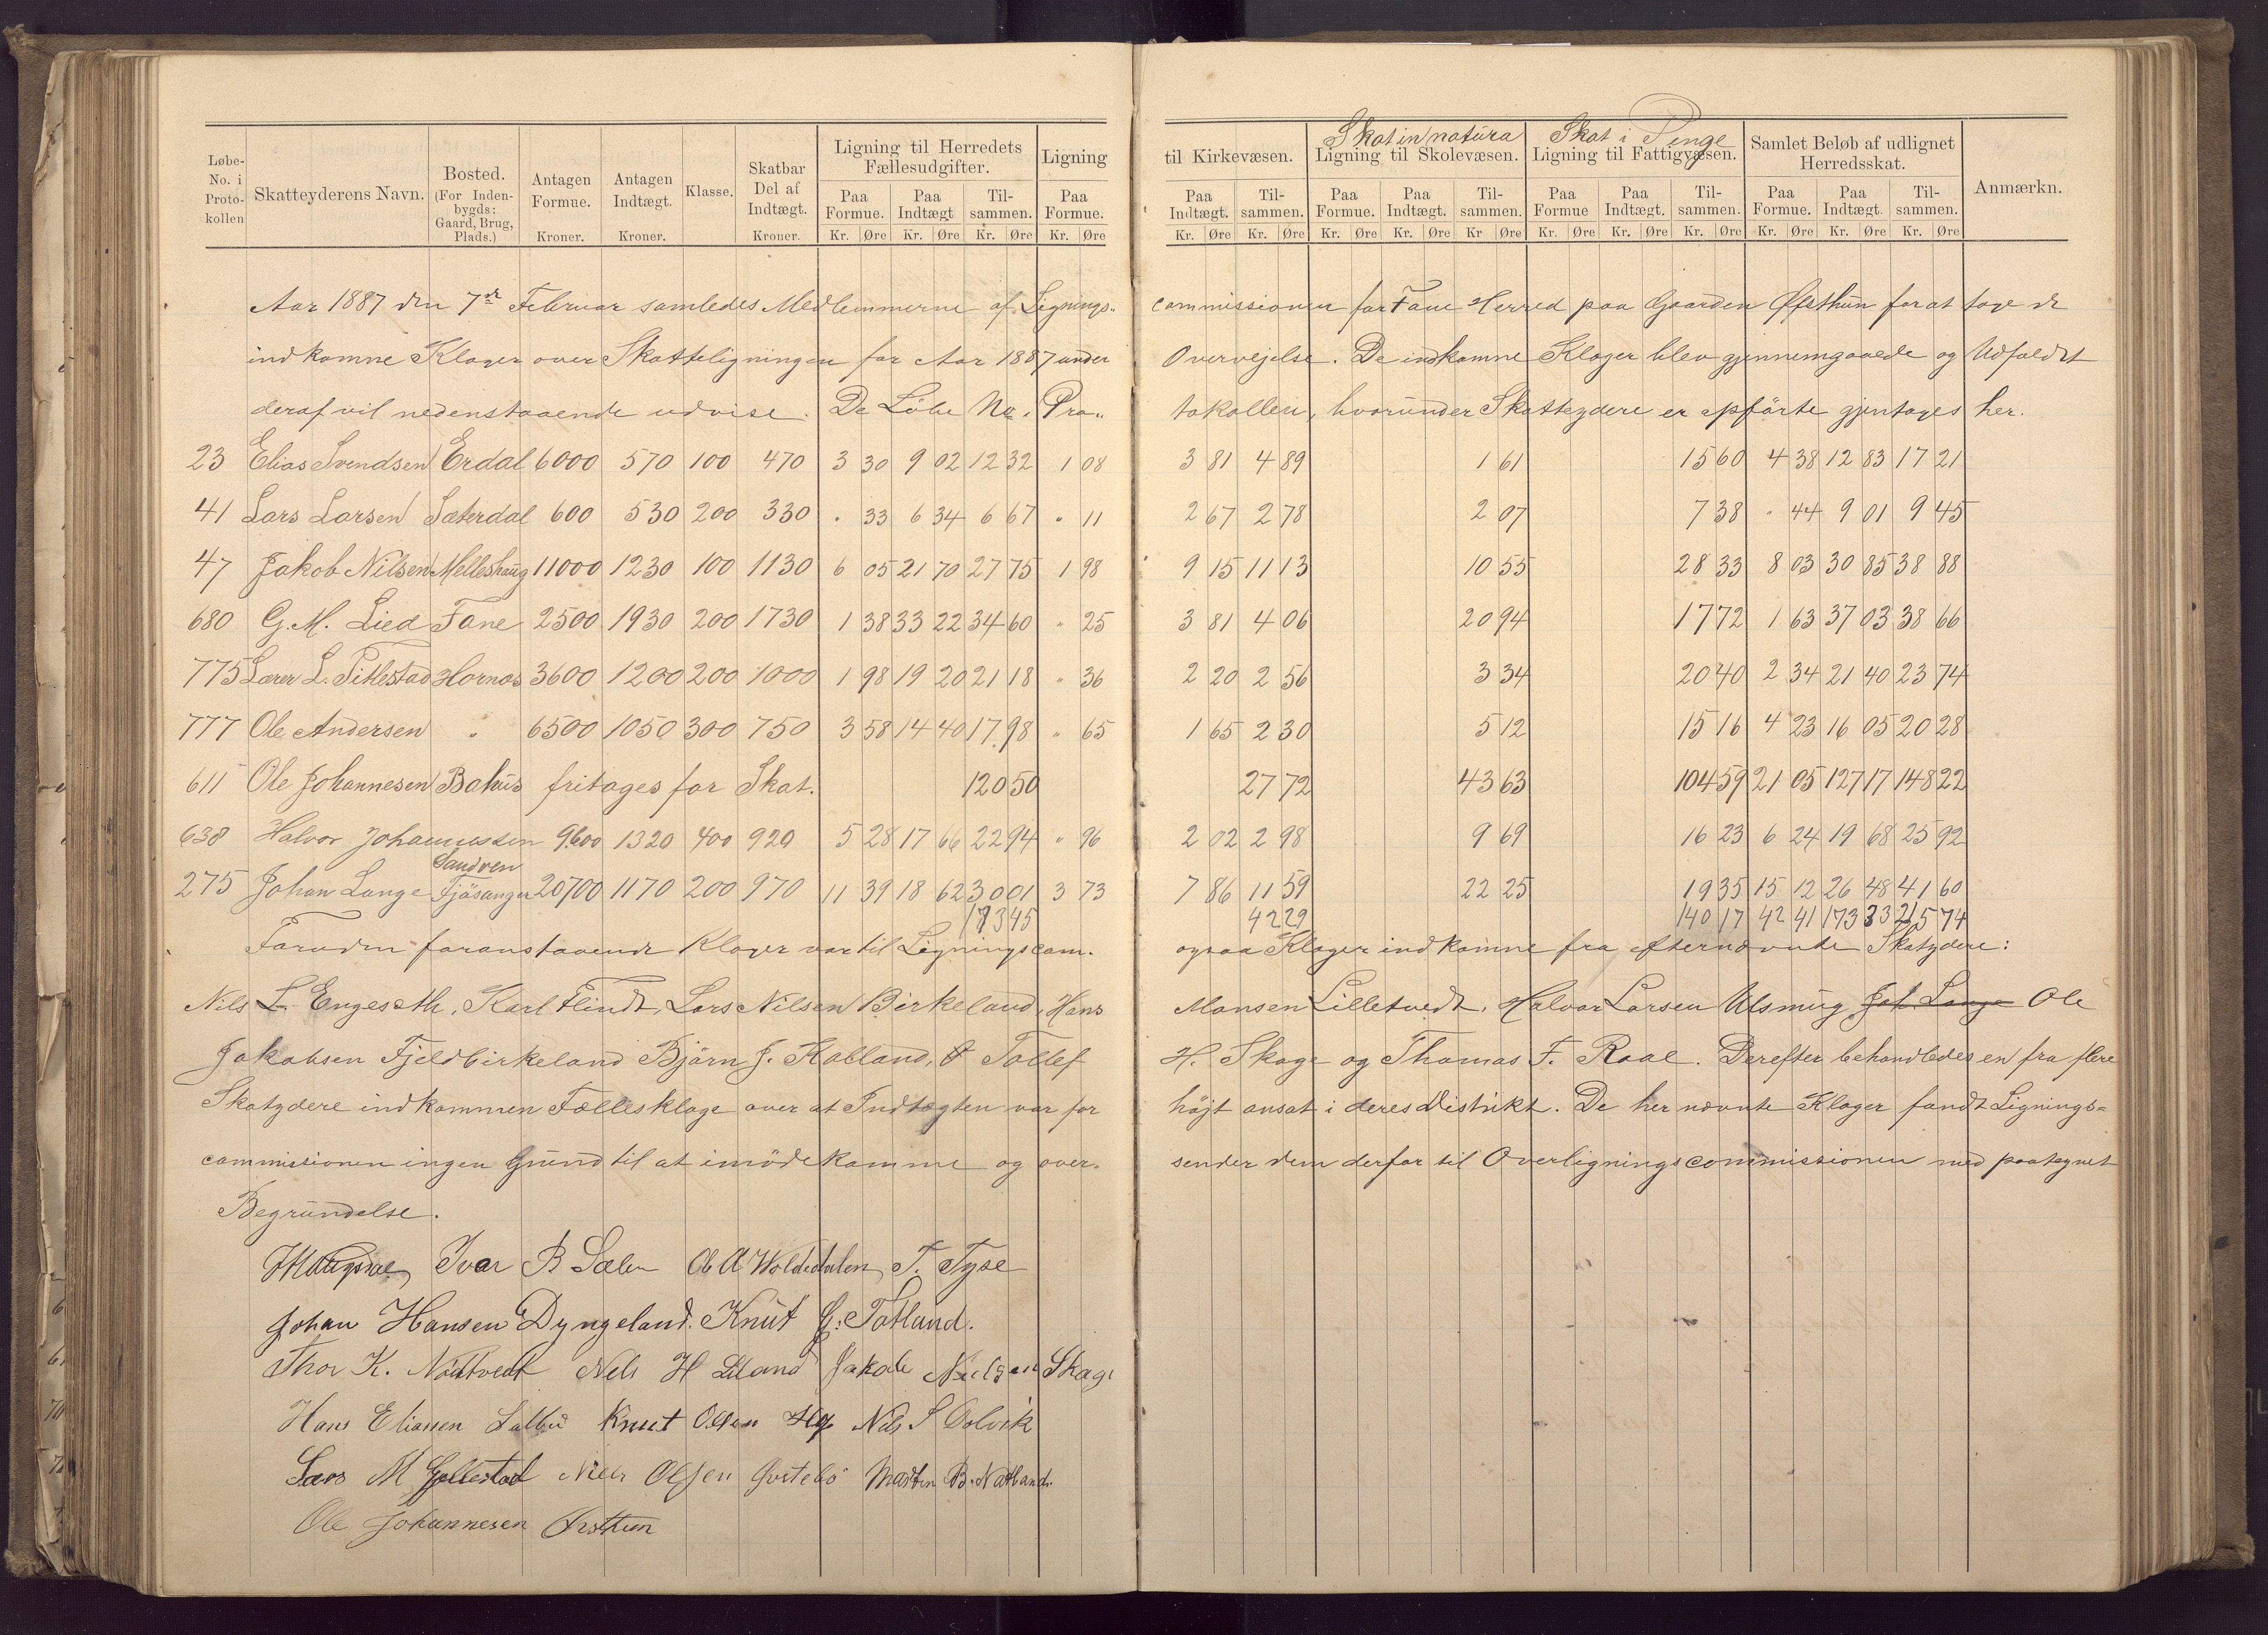 Løbe-No. i Protokollen | Skatteyderens Navn. | Bosted. (For Indenbygds: Gaard, Brug, Plads.) | Antagen Formue. Kroner. | Antagen Indtægt. Kroner. | Klasse. | Skatbar Del af Indtægt. Kroner. | Ligning til Herredets Fællesudgifter. Paa Formue. Kr. Øre | Paa Indtægt Kr. Øre | Tilsammen. Kr. Øre | Ligning Paa Formue. Kr. Øre
til Kirkevæsen. Paa Indtægt. Kr. Øre | Tilsammen. Kr. Øre | Skat in natura Ligning til Skolevæsen. Paa Formue. Kr. Øre | Paa Indtægt. Kr. Øre | Tilsammen. Kr Øre | Skat i Penge Ligning til Fattigvæsen. Paa Formue Kr. Øre | Paa Indtægt. Kr. Øre | Tilsammen. Kr. Øre | Samlet Beløb af udlignet Herredsskat. Paa Formue. Kr. Øre | Paa Indtægt. Kr. Øre | Tilsammen. Kr. Øre | Anmærkn.
Aar 1887 den 7de Februar samledes Medlemmerne af Lignings- commissionen for Fane Herred paa Gaarden Øfsthun for at tage de
indkomne Klager over Skatteligningen for Aar 1887 under Overvejelse. De indkomne Klager blev gjennemgaaede og Udfaldet
deraf vil nedenstaaende udvise. De Løbe No. i Pro- tokollen, hvorunder Skatteydere er opførte gjentages her.
23 Elias Svendsen Erdal 6000 570 100 470 3 30 9 02 12 32 1 08 3 81 4 89 1 61 15 60 4 38 12 83 17 21
41 Lars Larsen Sæterdal 600 530 200 330 " 33 6 34 6 67 " 11 2 67 2 78 2 07 7 38 " 44 9 01 9 45
47 Jakob Nilsen Melleshaug 11000 1230 100 1130 6 05 21 70 27 75 1 98 9 15 11 13 10 55 28 33 8 03 30 85 38 88
680 G. M. Lied Fane 2500 1930 200 1730 1 38 33 22 34 60 " 25 3 81 4 06 20 94 17 72 1 63 37 03 38 66
775 Lærer L. Titlestad Hornæs 3600 1200 200 1000 1 98 19 20 21 18 " 36 2 20 2 56 3 34 20 40 2 34 21 40 23 74
777 Ole Andersen " 6500 1050 300 750 3 58 14 40 17 98 " 65 1 65 2 30 5 12 15 16 4 23 16 05 20 28
611 Ole Johannesen Bahus fritages for Skat. 120 50 27 72 43 63 104 59 21 05 127 17 148 22
638 Halvor Johannessen 9600 1320 400 920 5 28 17 66 22 94 " 96 2 02 2 98 9 69 16 23 6 24 19 68 25 92
Sandven
275 Johan Lange Fjøsanger 20700 1170 200 970 11 39 18 62 30 01 3 73 7 86 11 59 22 25 19 35 15 12 26 48 41 60
173 45 42 29 140 17 42 41 173 33 215 74
Foruden foranstaaende Klager var til Ligningscom. ogsaa Klager indkomne fra efternævnte Skatydere:
Nils L. Engeseth, Karl Flindt, Lars Nilsen Birkeland, Hans Monsen Lilletvedt, Halvor Larsen Ulsmug Joh. Lange Ole
Jakobsen Fjeldbirkeland Bjørn J. Kalland, Tollef H. Skage og Thomas F. Raae. Derefter behandledes en fra flere
Skatydere indkommen Fællesklage over at Indtægten var for højt ansat i deres Distrikt. De her nævnte Klager fandt Lignings-
commissionen ingen Grund til at imødekomme og over- sender dem derfor til Overligningscommissionen med paategnet
Begründelse.
Ivar B Sælen Ole A Woldedalen, T. Tyse
Johan Hansen Dyngeland. Knut G. Totland.
Thor K. Nødtvedt Nels H Liland Jakob Nielsen Skage
Hans Eliassen Knut Olsen Nils S Dolvik
Lars M Niels Olsen Martin B. Natland.
Ole Johannesen Øvsthun